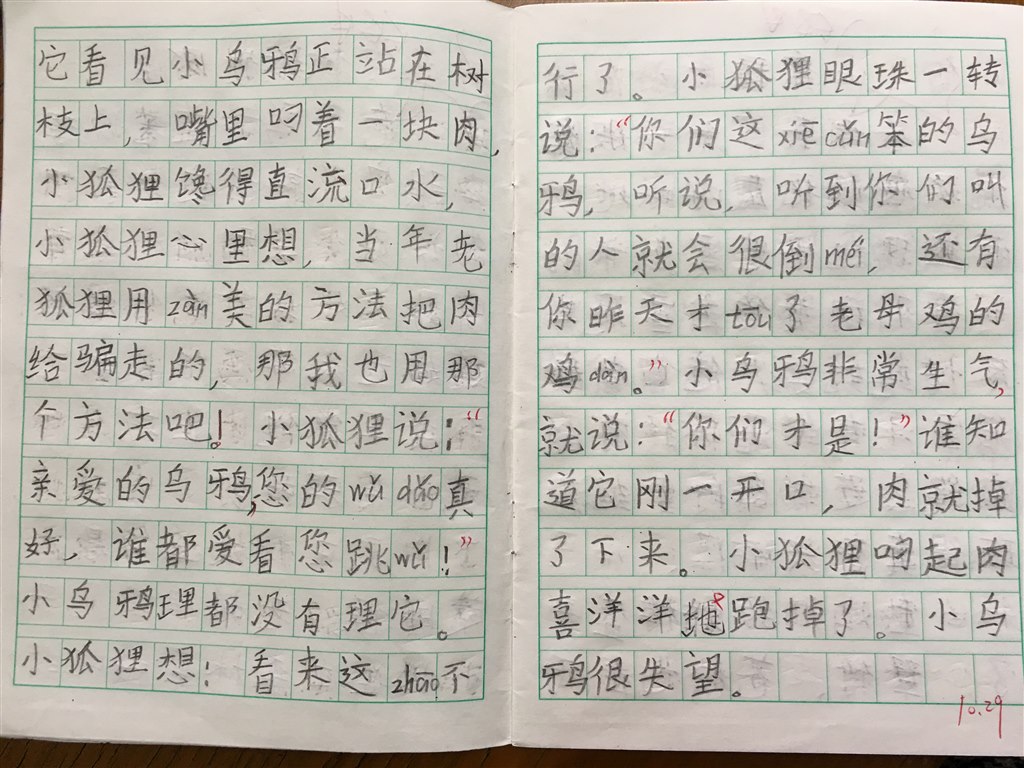 它看见小乌鸦正站在树
枝上，嘴里叼着一块肉，
小狐狸馋得直流口水，
小狐狸心里想，当年老
狐狸用zàn美的方法把肉
给骗走的，那我也用那
个方法吧！小狐狸说：“
亲爱的乌鸦，您的wǔ dǎo真
好，谁都爱看您跳wǔ！”
小乌鸦理都没有理它。
小狐狸想：看来这zhāo不
行了。小狐狸眼珠一转
说：“你们这xiē cǔn笨的乌
鸦，听说，听到你们叫
的人就会很倒méi，还有
你昨天才tōu了老母鸡的
鸡dàn。”小乌鸦非常生气，
就说：“你们才是！”谁知
道它刚一开口，肉就掉
了下来。小狐狸叼起肉
喜洋洋跑掉了。小乌
鸦很失望。
10.29